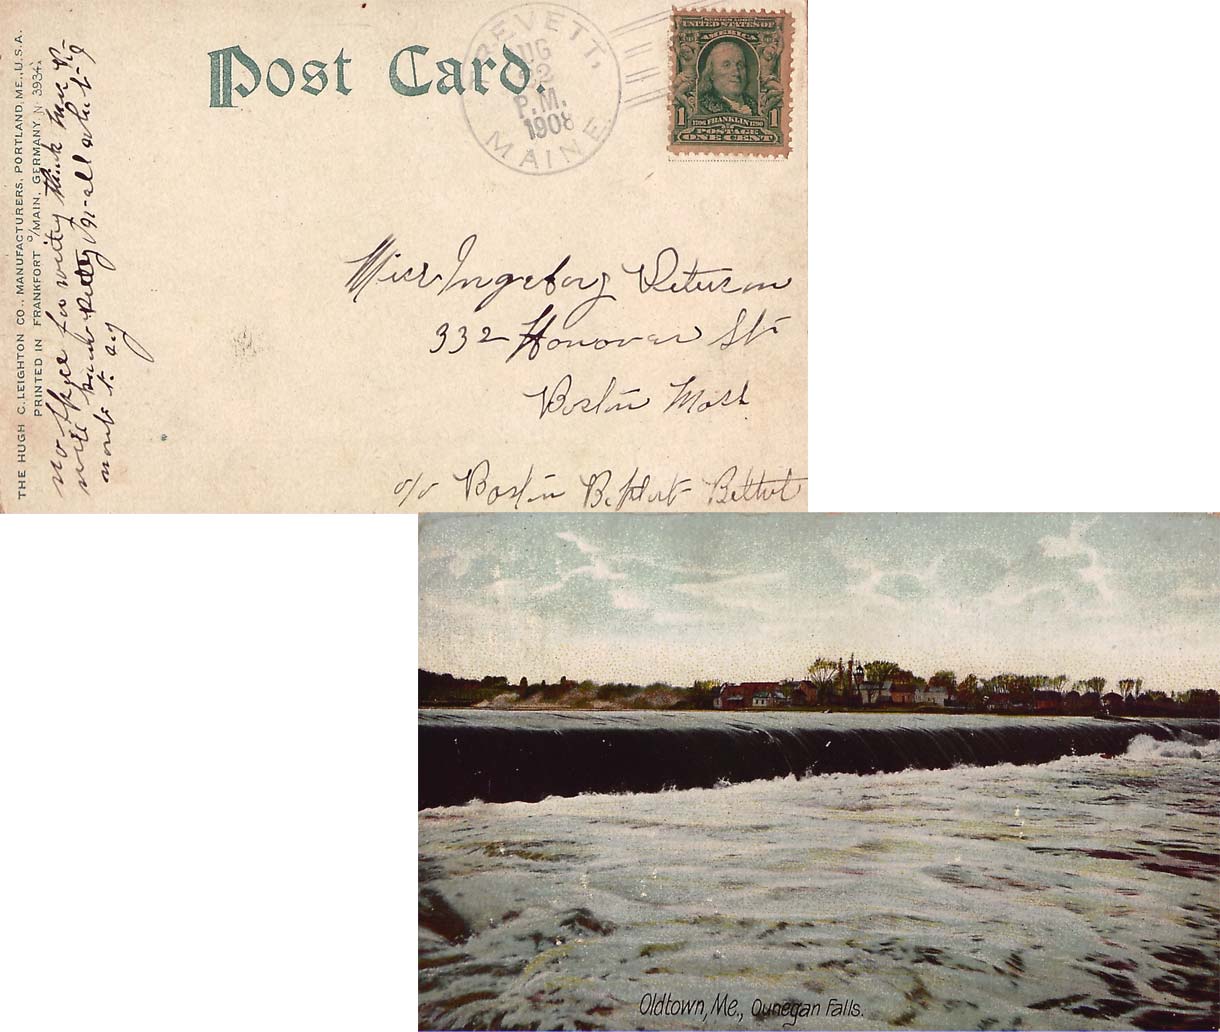 THE HUGH C. LEIGHTON CO., MANUFACTURERS, PORTLAND, ME., U.S.A.
PRINTED IN FRANKFORT o/MAIN, GERMANY. N 3934.
no space for writing think
will
Post Card.
TREVETT,
AUG
P.M.
1908
MAINE.
SERIES 1902
UNITED STATES OF
AMERICA
1706 FRANKLIN 1790
1 1
POSTAGE
ONE CENT
Miss Ingeborg Peterson
332 Hanover St
Boston Mass
c/o Boston Baptist Bethel
Oldtown, Me., Ounegan Falls.